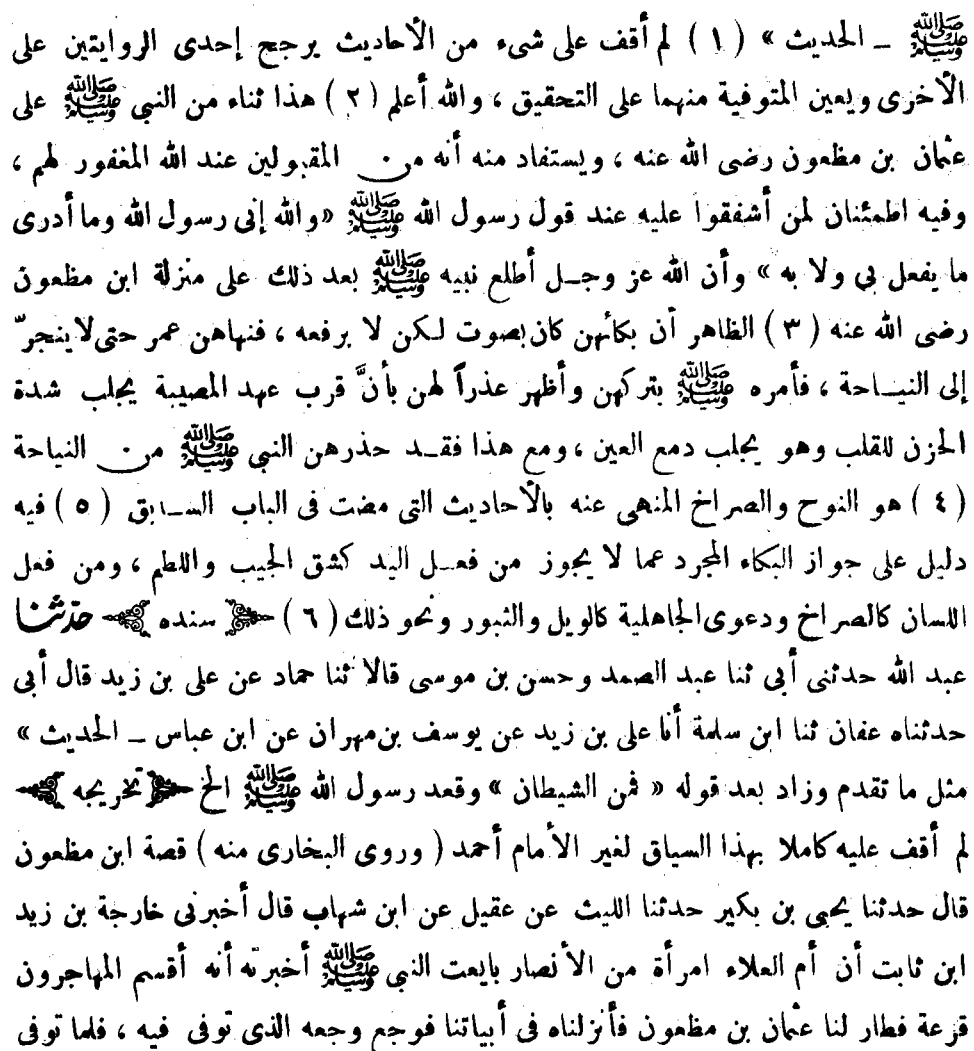 ﷺ ـ الحديث » ( ١ ) لم أقف على شىء من الأحاديث يرجح إحدى الروايتين على
الأخرى ويعين المتوفية منهما على التحقيق ، والله أعلم ( ٢ ) هذا ثناء من النبى ﷺ على
عثمان بن مظعون رضى الله عنه ، ويستفاد منه أنه من المقبولين عند الله المغفور لهم ،
وفيه اطمئنان لمن أشفقوا عليه عند قول رسول الله ﷺ «والله إنى رسول الله وما أدرى
ما يفعل بى ولا به » وأن الله عز وجل أطلع نبيه ﷺ بعد ذلك على منزلة ابن مظعون
رضى الله عنه ( ٣ ) الظاهر أن بكائهن كان بصوت لكن لا برفعه ، فنهاهن عمر حتى لا ينجرّ
إلى النياحة ، فأمره ﷺ بتركهن وأظهر عذراً لهن بأنَّ قرب عهد المصيبة يجلب شدة
الحزن للقلب وهو يجلب دمع العين ، ومع هذا فقد حذرهن النبى ﷺ من النياحة
( ٤ ) هو النوح والصراخ المنهى عنه بالأحاديث التى مضت فى الباب السابق ( ٥ ) فيه
دليل على جواز البكاء المجرد عما لا يجوز من فعل اليد كشق الجيب واللطم ، ومن فعل
اللسان كالصراخ ودعوى الجاهلية كالويل والثبور ونحو ذلك ( ٦ ) ﴿ سنده ﴾ حدّثنا
عبد الله حدثنى أبى ثنا عبد الصمد وحسن بن موسى قالا ثنا حماد عن على بن زيد قال أبى
حدثناه عفان ثنا ابن سلمة أنا على بن زيد عن يوسف بن مهران عن ابن عباس ـ الحديث »
مثل ما تقدم وزاد بعد قوله « فمن الشيطان » وقعد رسول الله ﷺ الخ ﴿ تخريجه ﴾
لم أقف عليه كاملا بهذا السياق لغير الأمام أحمد ( وروى البخارى منه ) قصة ابن مظعون
قال حدثنا يحيى بن بكير حدثنا الليث عن عقيل عن ابن شهاب قال أخبرنى خارجة بن زيد
ابن ثابت أن أم العلاء امرأة من الأنصار بايعت النبى ﷺ أخبرته أنه أقسم المهاجرون
قرعة فطار لنا عثمان بن مظعون فأنزلناه فى أبياتنا فوجع وجعه الذى توفى فيه ، فلما توفى